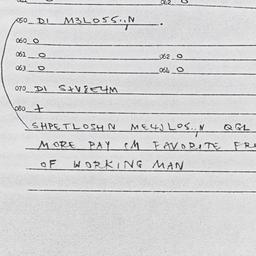 050 DI M3LOSS..N .
060 O
061 O 062 O
063 O 064 O
070 DI S+V8E4M
080 +
SHPETLOSHN ME4JLOS..N QGL
MORE PAY IM FAVORITE FR
OF WORKING MAN